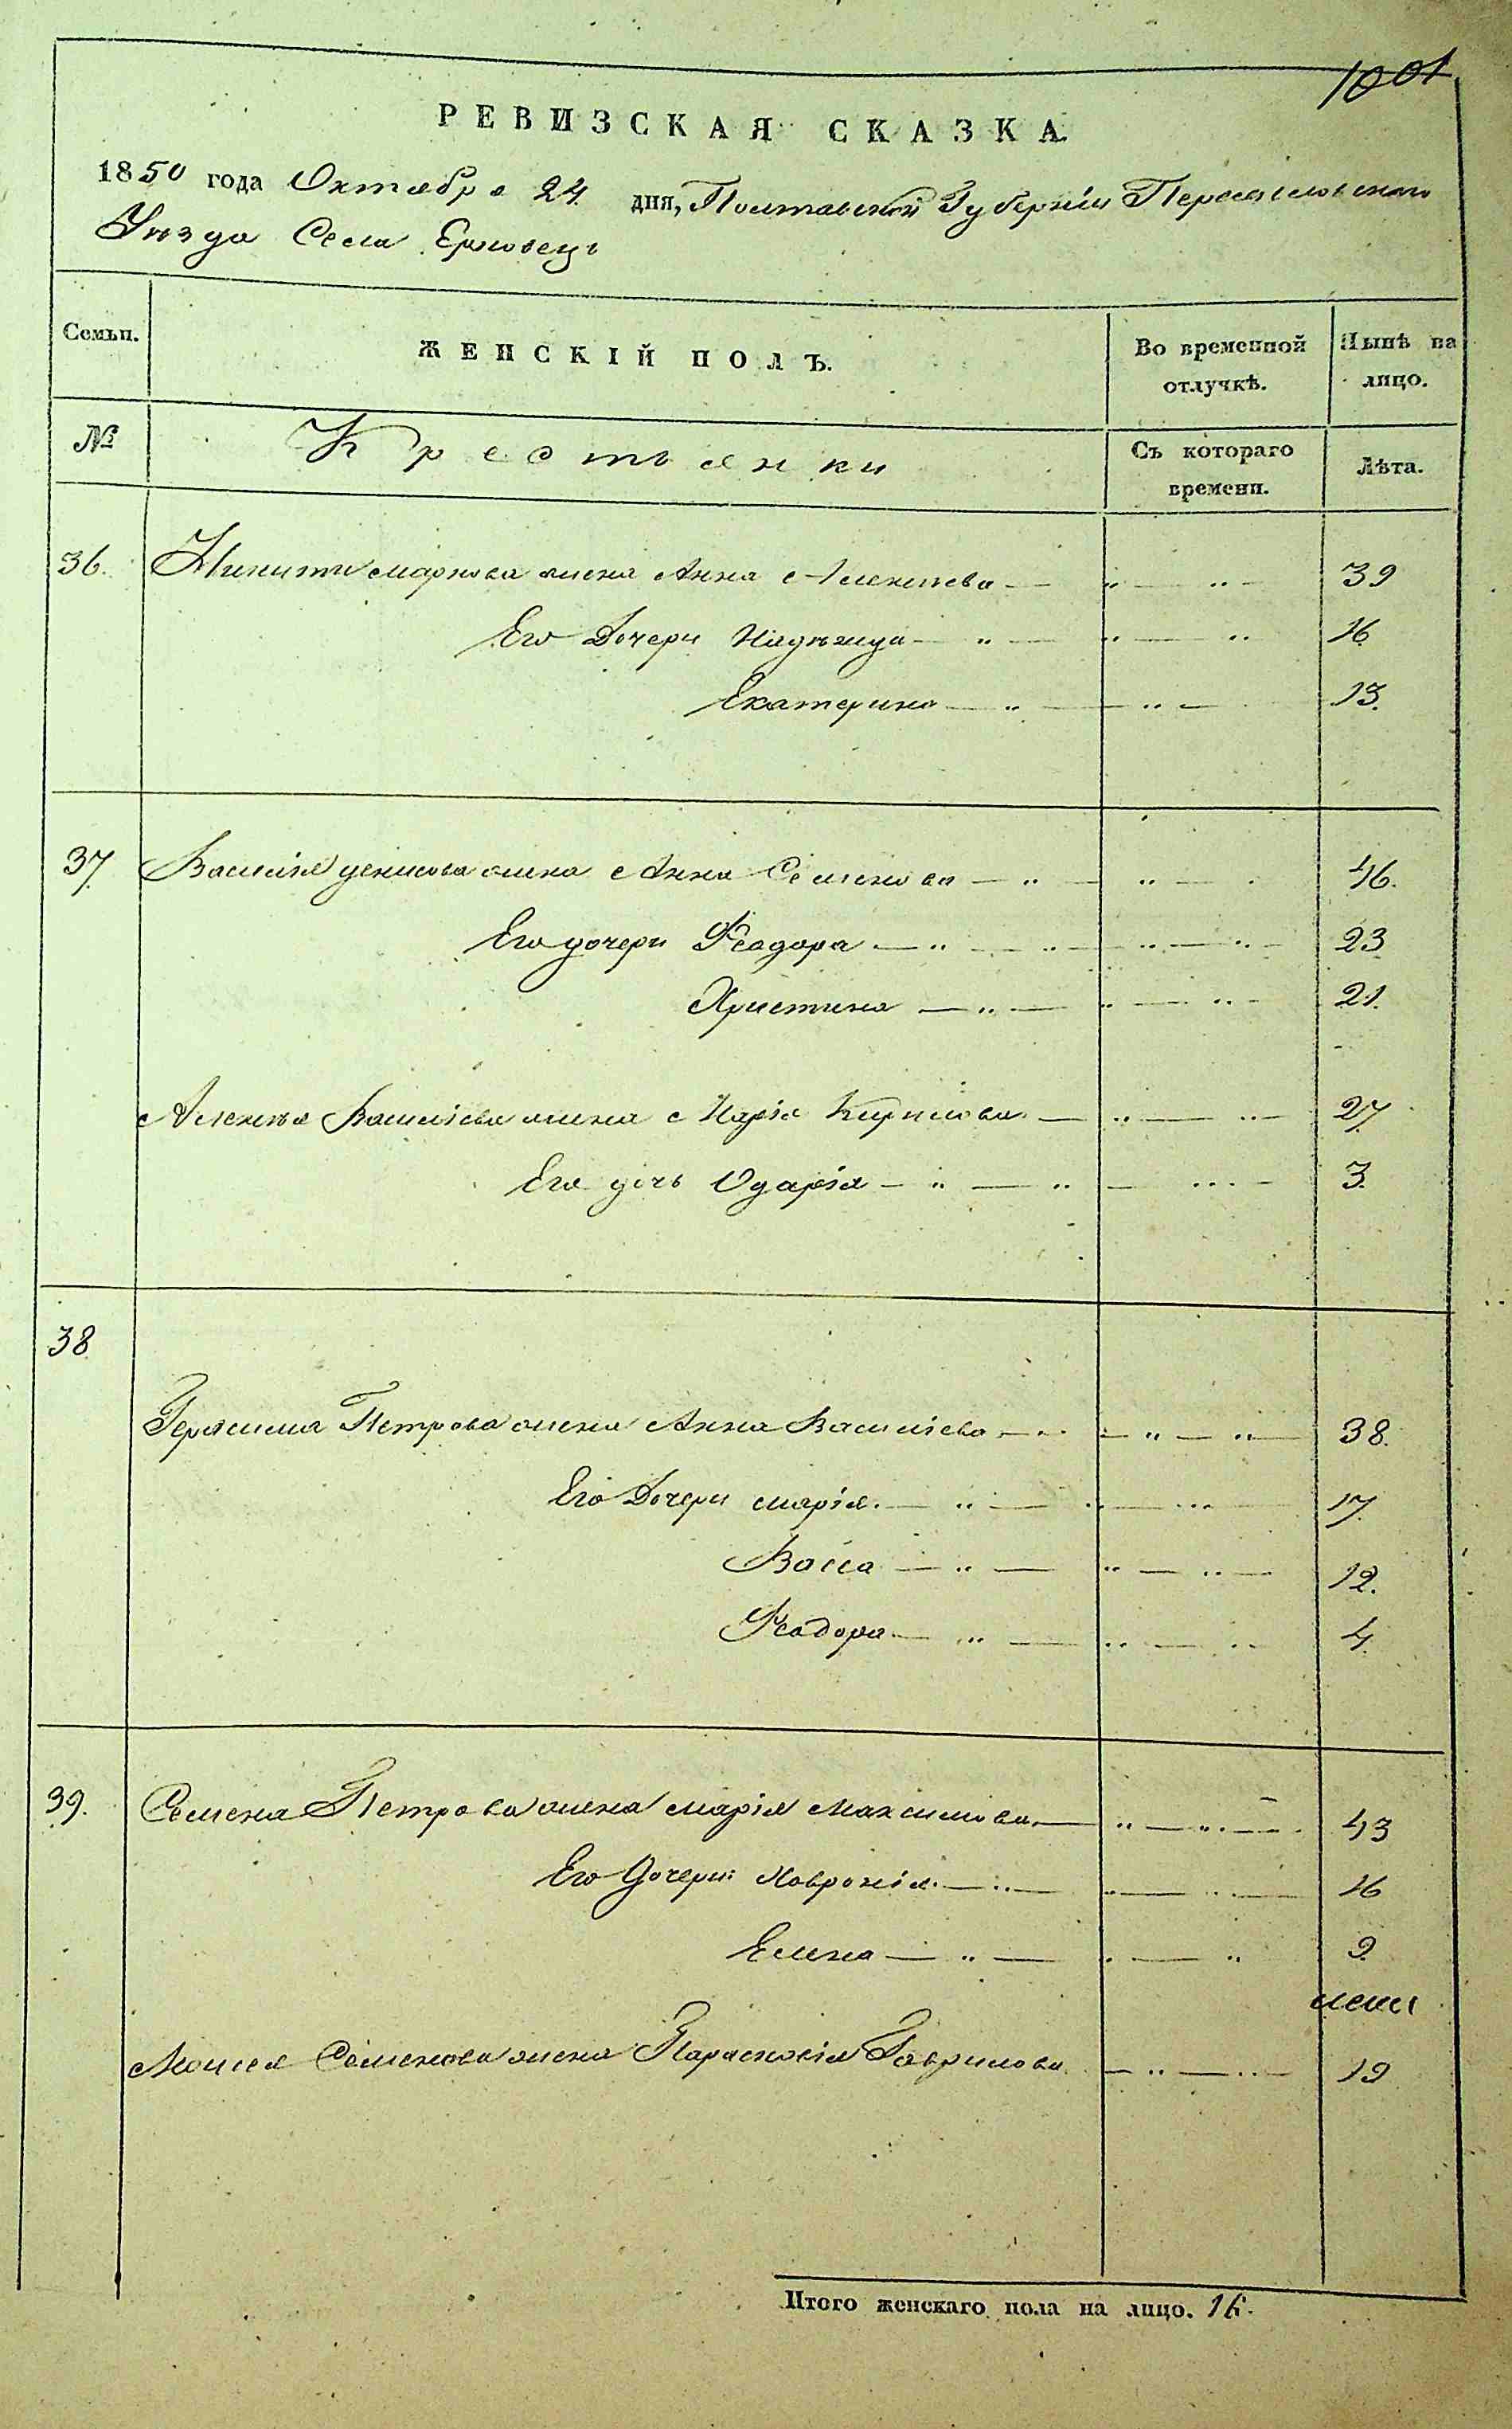 1001
РЕВИЗСКАЯ СКАЗКА
1850 года Октября 24 дня, Полтавской Губерніи Переяславскаго
Уѣзда Села Ерковецъ
Семьи. ЖЕНСКІЙ ПОЛЪ. Во временной отлучкѣ. Нынѣ на лицо.
№ Крестьянки Съ котораго времени. Лѣта.
36. Никиты Маркова жена Анна Алексѣева 39
Его Дочери Надѣжда 16
Екатерина 13.
37 Василія денисова жена Анна Семенова 46.
Его дочери Феодора 23
Христина 21.
Алексѣя Василіева жена Марія Кирилова 27
Его дочь Одарія 3.
38
Герасима Петрова жена Анна Василіева 38.
Его Дочери марія. 17.
Васса 12.
Феодора 4.
39. Семена Петрова жена марія Максимова 43
Его Дочери Ховронія 16
Елена 9.
Моисея Семенова жена Параскевія Гаврилова 19
Итого женскаго пола на лицо. 16.